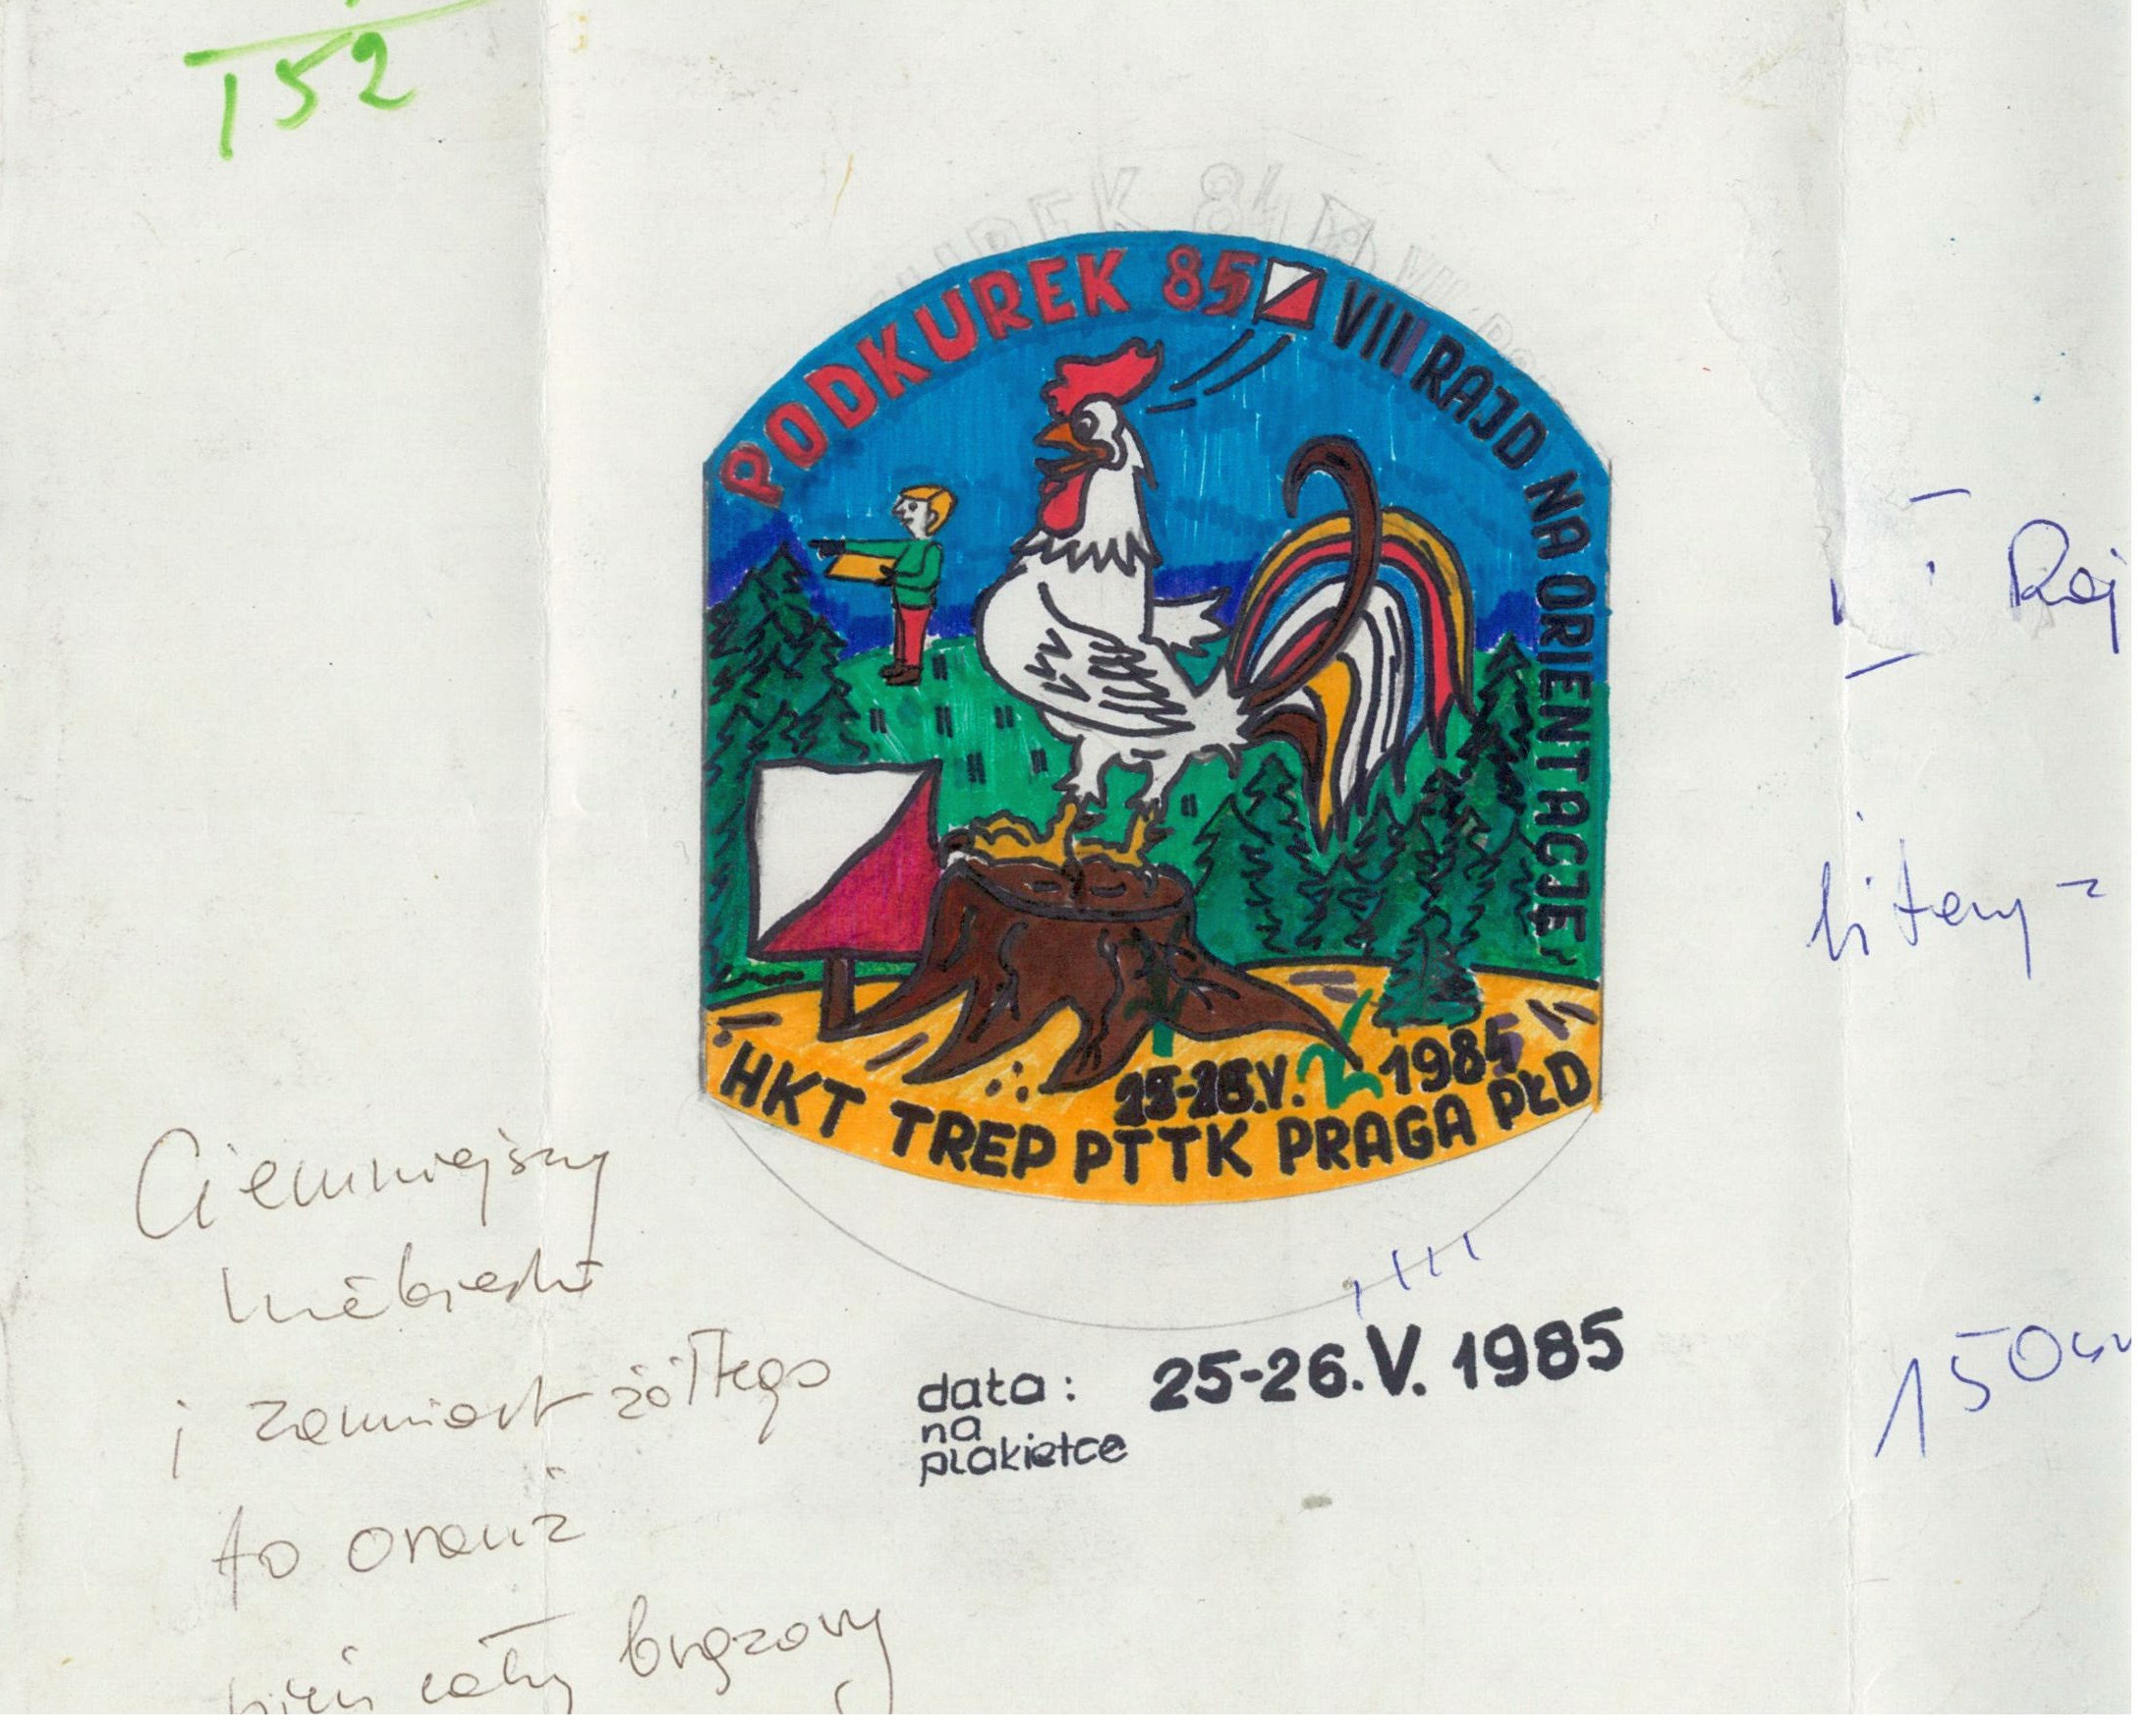 152
PODKUREK 85 VIII RAJD NA ORIENTACJĘ
25-26.V. 1985
HKT TREP PTTK PRAGA PŁD
Raj
litery
150
Ciemniejszy
niebieski
i zamiast żółtego
to oranż
pień cały brązowy
data: 25-26.V. 1985
na
plakietce